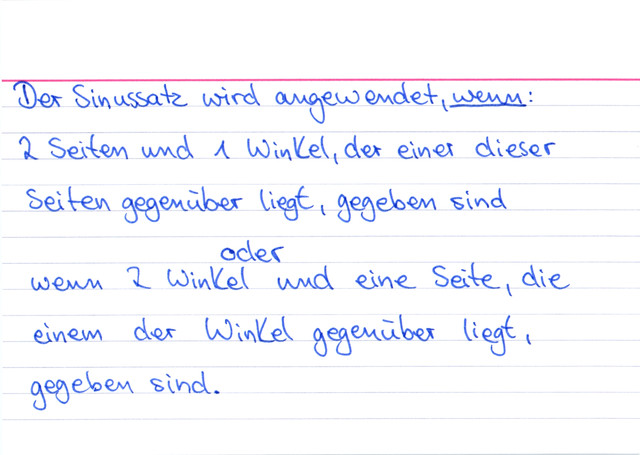 Der Sinussatz wird angewendet, wenn:
2 Seiten und 1 Winkel, der einer dieser
Seiten gegenüber liegt, gegeben sind
oder
wenn 2 Winkel und eine Seite, die
einem der Winkel gegenüber liegt,
gegeben sind.